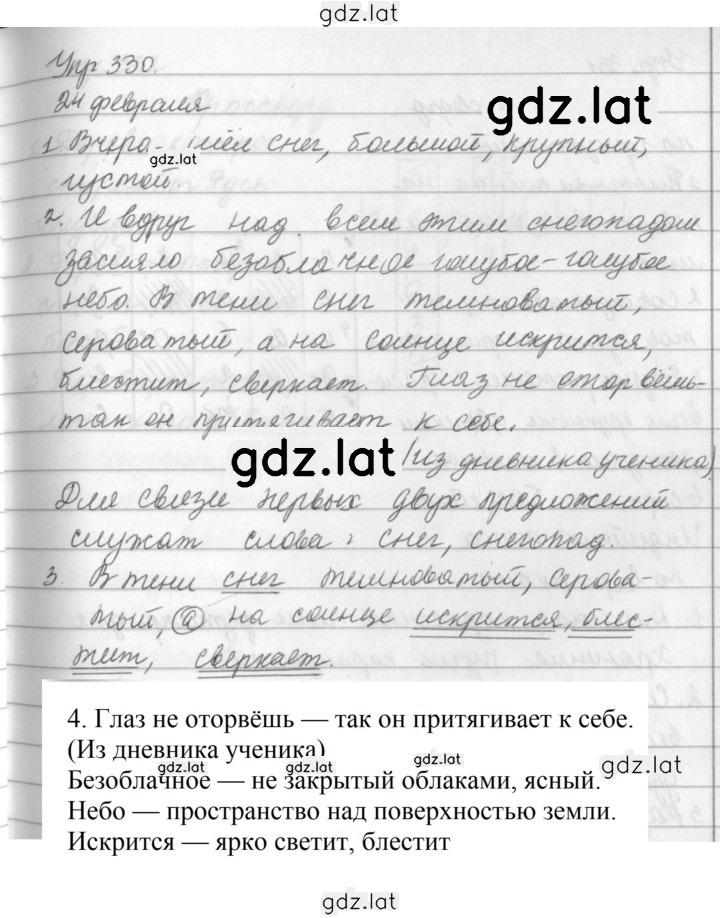 gdz.lat
Упр 330.
24 февраля
gdz.lat
1 Вчера шёл снег, большой, крупный,
gdz.lat
густой.
2. И вдруг над всем этим снегопадом
засияло безоблачное голубое-голубое
небо. В тени снег темноватый,
сероватый, а на солнце искрится,
блестит, сверкает. Глаз не оторвёшь-
так он притягивает к себе.
gdz.lat
(из дневника ученика)
Для связи первых двух предложений
служат слова: снег, снегопад.
3. В тени снег темноватый, серова-
тый, а на солнце искрится, блес-
тит, сверкает.
4. Глаз не оторвёшь — так он притягивает к себе.
(Из дневника ученика)
gdz.lat gdz.lat gdz.lat gdz.lat
Безоблачное — не закрытый облаками, ясный.
Небо — пространство над поверхностью земли.
Искрится — ярко светит, блестит
gdz.lat